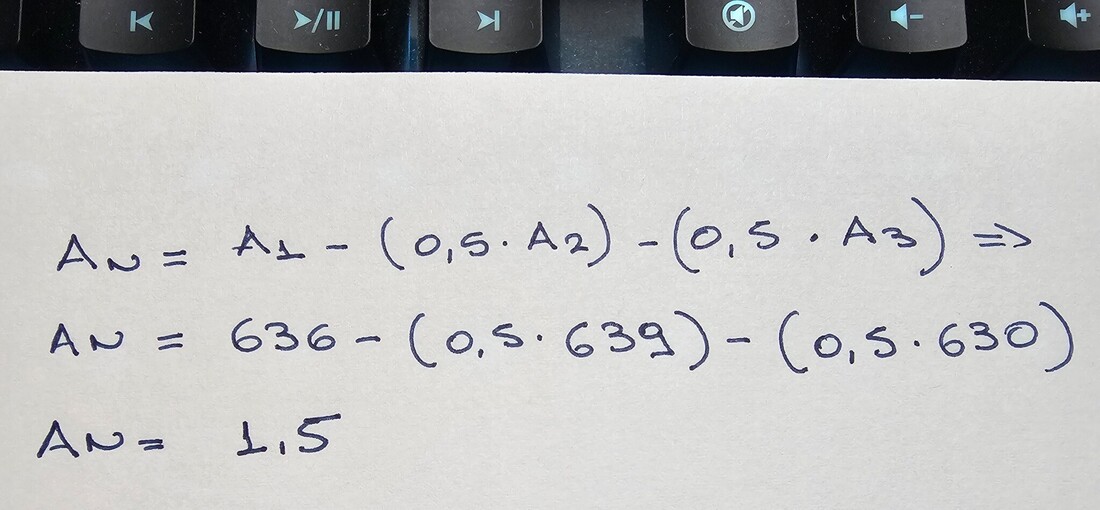 AN = A1 - (0,5 · A2) - (0,5 · A3) =>
AN = 636 - (0,5 · 639) - (0,5 · 630)
AN = 1,5